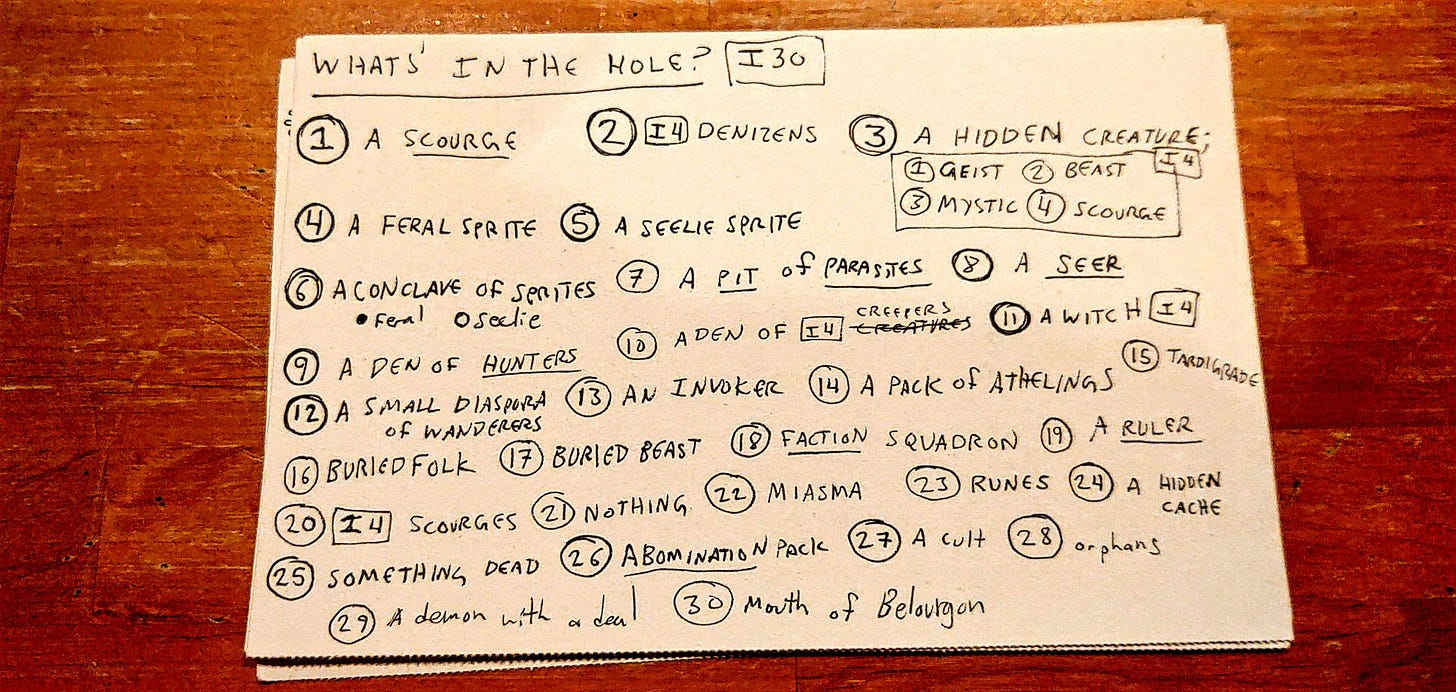 WHATS' IN THE HOLE? I30
1 A SCOURGE 2 I4 DENIZENS 3 A HIDDEN CREATURE; I4
1 GEIST 2 BEAST
3 MYSTIC 4 SCOURGE
4 A FERAL SPRITE 5 A SEELIE SPRITE
6 A CONCLAVE OF SPRITES 7 A PIT of PARASITES 8 A SEER
• Feral O Seelie
9 A DEN OF HUNTERS 10 A DEN OF I4 CREATURES CREEPERS 11 A WITCH I4
12 A SMALL DIASPORA of WANDERERS 13 AN INVOKER 14 A PACK of ATHELINGS 15 TARDIGRADE
16 BURIED FOLK 17 BURIED BEAST 18 FACTION SQUADRON 19 A RULER
20 I4 SCOURGES 21 NOTHING 22 MIASMA 23 RUNES 24 A HIDDEN CACHE
25 SOMETHING DEAD 26 ABOMINATION PACK 27 A CULT 28 orphans
29 A demon with a deal 30 Mouth of Belourgon